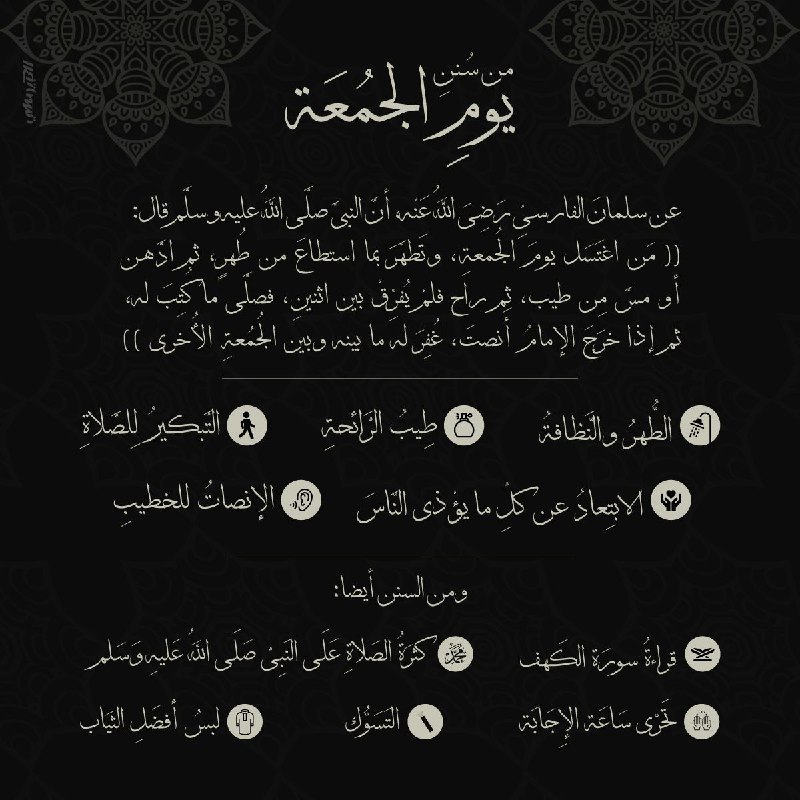 من سُننِ
يومِ الجُمعَة
عن سلمانَ الفارسيِّ رَضِيَ اللهُ عَنْه، أنَّ النبيَّ صلَّى اللهُ عليه وسلَّم قال:
(( مَن اغتَسَل يومَ الجُمعةِ، وتَطهَّرَ بما استطاعَ من طُهرٍ، ثم ادَّهن
أو مسَّ مِن طيب، ثم راح فلمْ يُفرِّقْ بين اثنينِ، فصلَّى ما كُتِبَ له،
ثم إذا خرَجَ الإمامُ أنصتَ، غُفِرَ له ما بينه وبين الجُمُعةِ الأُخرى ))
الطُّهرُ والنَّظافةُ
طِيبُ الرَّائحةِ
التَّبكيرُ لِلصَّلاةِ
الابتِعادُ عن كلِّ ما يؤذي النَّاسَ
الإنصاتُ للخطيبِ
ومن السنن أيضا:
قراءةُ سورَة الكَهف
كثرَةُ الصَلاةِ عَلَى النَبِيّ صَلَى اللهُ عَليهِ وَسَلم
تَحَرّى سَاعَة الإجَابَة
التَسَوُّك
لبسُ أفضَلِ الثيَاب